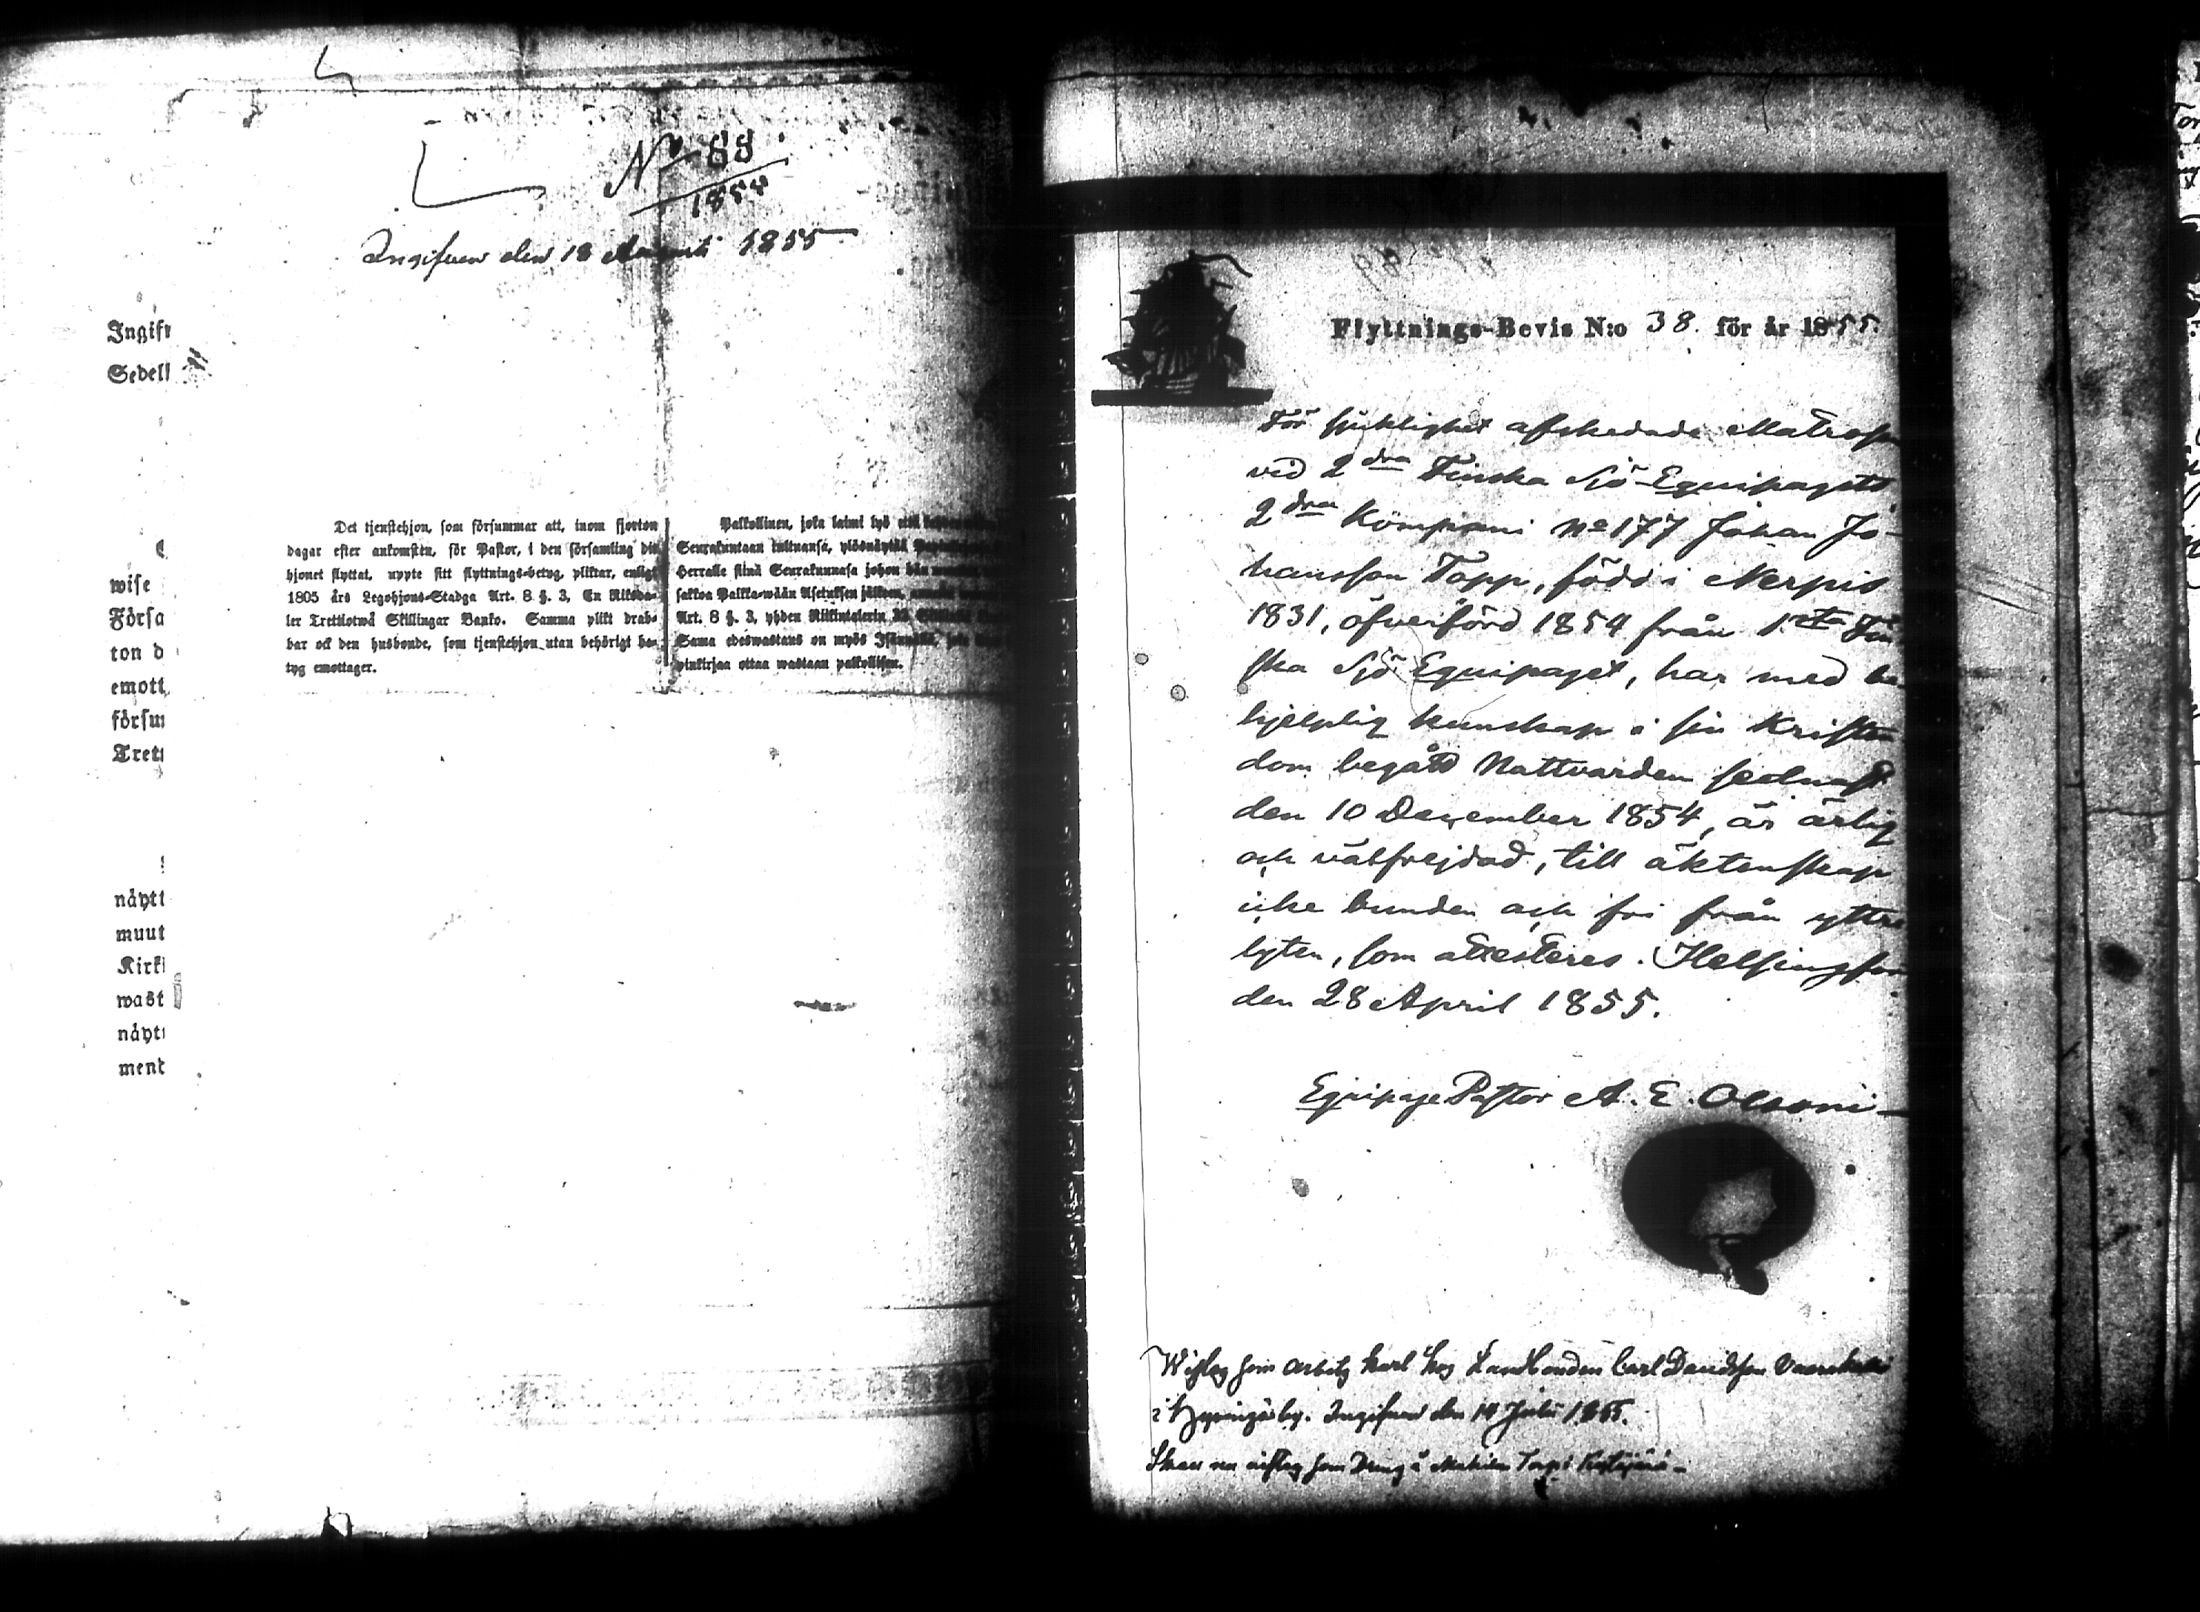 No 88
1855
Ingifven den 18 Augusti 1855
Ingifv
Sedell
wise
Försa
ton d
emott
försum
Trett
nåytt
muut
Kirk
wast
nåytt
ment
Det tjenstehjon, som försummar att, inom fjorton
dagar efter ankomsten, för Pastor, i den församling dit
hjonet flyttat, uppte sitt flyttnings-betyg, pliktar, enligt
1805 års Legohjons-Stadga Art. 8 §. 3, En Riksda-
ler Trettiotwå Skillingar Banko. Samma plikt drab-
bar ock den husbonde, som tjenstehjon utan behörigt be-
tyg emottager.
Palkollinen, joka laimi lyö että
Seurakuntaan tultuansa, ylösnäyttää
Herralle siinä Seurakunnasa johon hän
sakkoa Palkka-wään Asetuksen jälkeen,
Art. 8 §. 3, yhden Riikintalerin 32
Sama edeswastaus on myös Isännällä, joka
pinkirjaa ottaa wastaan palkollisen.
Flyttnings-Bevis N:o 38. för år 1855.
För sjuklighet afskedade Matrosen
vid 2dra Finska Sjö-Equipagets
2dra Kompani No 177 Johan Jo-
hansson Topp, född i Nerpis
1831, öfverförd 1854 från 1sta Fin
ska Sjö Equipaget, har med be-
hjelplig kunskap i sin Kristen
dom begått Nattvarden sednast
den 10 December 1854, är ärlig
och välfrejdad, till äktenskap
icke bunden och fri från yttre
lyten, som attesteras. Helsingfors
den 28 April 1855.
Equipage Pastor A. E. Olsoni
som arbets karl hos Landbonden Carl Davidsson
i by. Ingifven den 14 Juli 1855.
som Dräng å